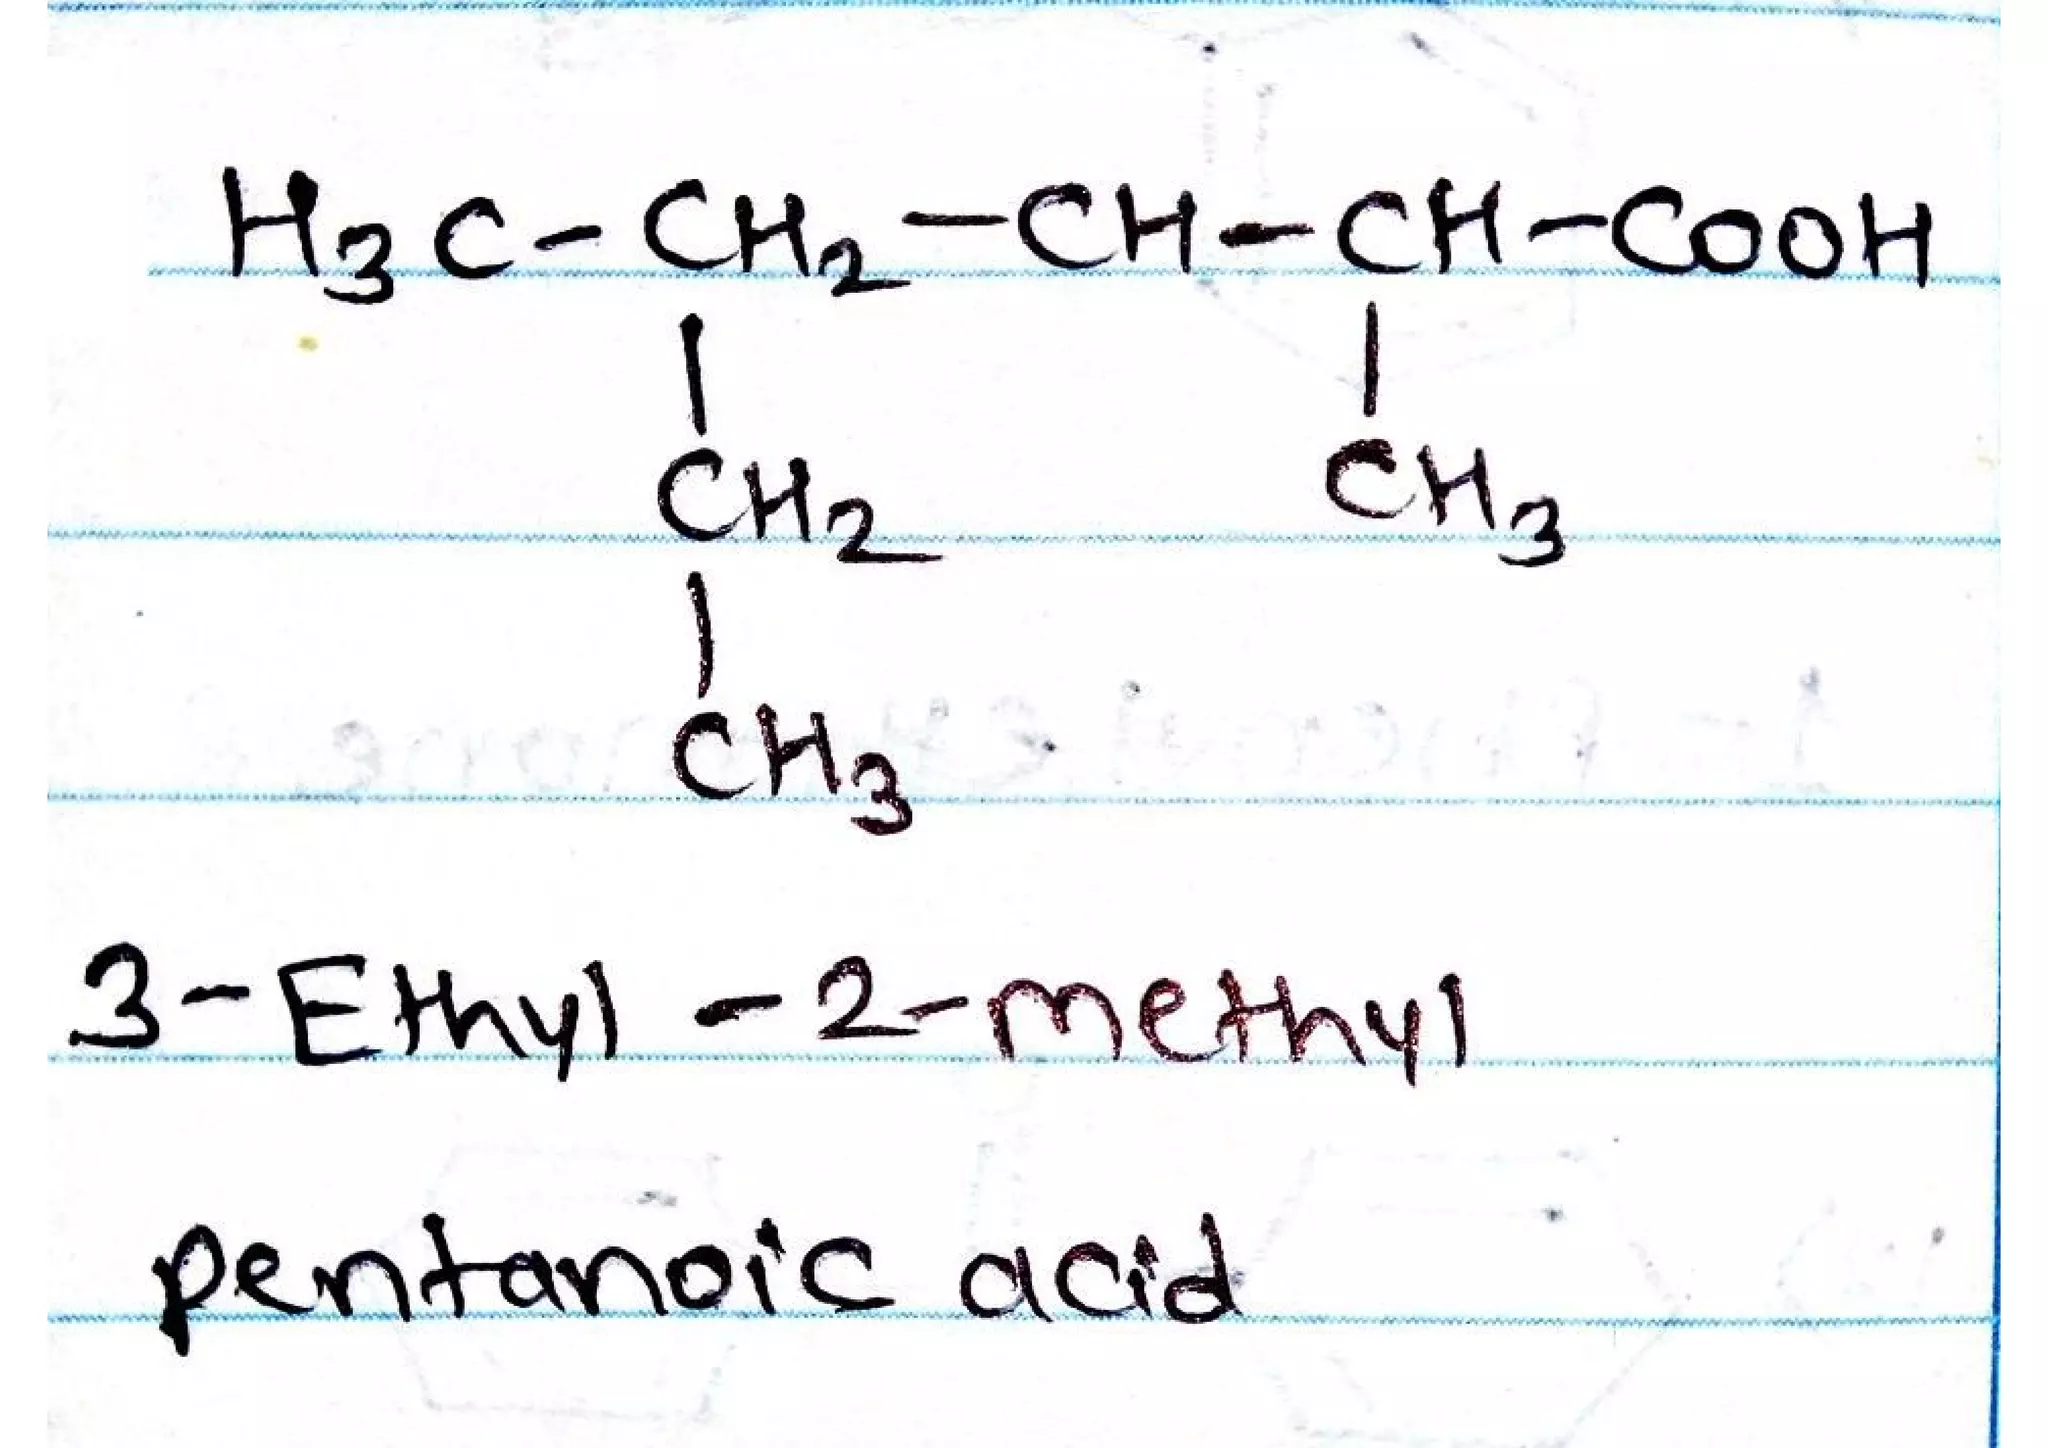 H₃C-CH₂-CH-CH-COOH
| |
CH₂ CH₃
|
CH₃
3-Ethyl-2-methyl
pentanoic acid